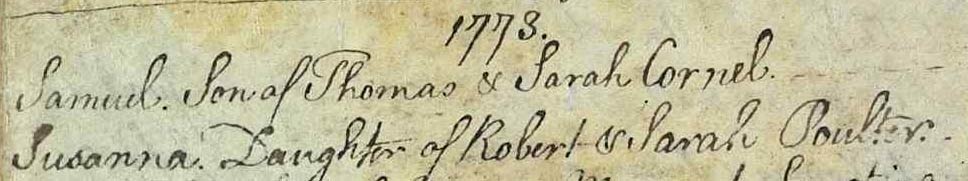 1773.
Samuel. Son of Thomas & Sarah Cornel.
Susanna. Daughter of Robert & Sarah Poulter.